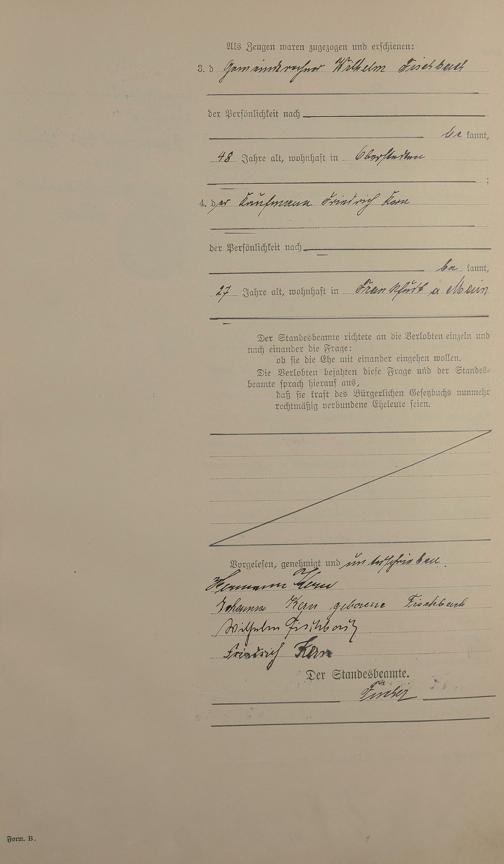 Als Zeugen waren zugezogen und erschienen:
3. d Gemeinderechner Wilhelm Fischbach
der Persönlichkeit nach
be kannt,
48 Jahre alt, wohnhaft in Oberstedten
;
4. der Kaufmann Friedrich Kern
der Persönlichkeit nach
be kannt,
27 Jahre alt, wohnhaft in Frankfurt a Main
Der Standesbeamte richtete an die Verlobten einzeln und
nach einander die Frage:
ob sie die Ehe mit einander eingehen wollen.
Die Verlobten bejahten diese Frage und der Standes-
beamte sprach hierauf aus,
daß sie kraft des Bürgerlichen Gesetzbuchs nunmehr
rechtmäßig verbundene Eheleute seien.
Vorgelesen, genehmigt und unterschrieben.
Hermann Kern
Kern geborene Fischbach
Wilhelm Fischbach
Friedrich Kern
Der Standesbeamte.
Form. B.